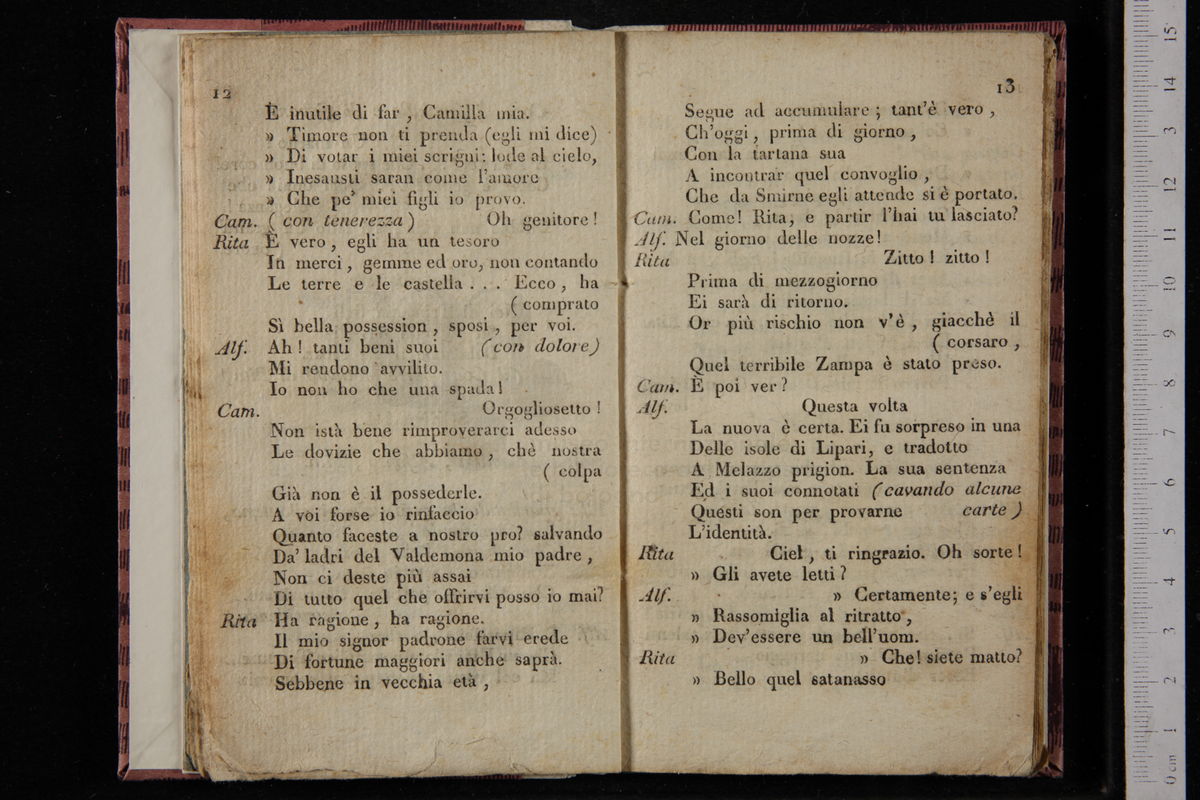 12
È inutile di far , Camilla mia.
» Timore non ti prenda (egli mi dice)
» Di votar i miei scrigni: lode al cielo,
» Inesausti saran come l'amore
» Che pe' miei figli io provo.
Cam. ( con tenerezza ) Oh genitore !
Rita È vero , egli ha un tesoro
In merci , gemme ed oro, non contando
Le terre e le castella . . . Ecco , ha
( comprato
Sì bella possession , sposi , per voi.
Alf. Ah ! tanti beni suoi (con dolore)
Mi rendono avvilito.
Io non ho che una spada!
Cam. Orgogliosetto !
Non istà bene rimproverarci adesso
Le dovizie che abbiamo , chè nostra
( colpa
Già non è il possederle.
A voi forse io rinfaccio
Quanto faceste a nostro pro? salvando
Da' ladri del Valdemona mio padre ,
Non ci deste più assai
Di tutto quel che offrirvi posso io mai?
Rita Ha ragione , ha ragione.
Il mio signor padrone farvi erede
Di fortune maggiori anche saprà.
Sebbene in vecchia età ,
13
Segue ad accumulare ; tant'è vero ,
Ch'oggi , prima di giorno ,
Con la tartana sua
A incontrar quel convoglio ,
Che da Smirne egli attende si è portato.
Cam. Come! Rita, e partir l'hai tu lasciato?
Alf. Nel giorno delle nozze!
Rita Zitto ! zitto !
Prima di mezzogiorno
Ei sarà di ritorno.
Or più rischio non v'è , giacchè il
( corsaro ,
Quel terribile Zampa è stato preso.
Cam. E poi ver ?
Alf. Questa volta
La nuova è certa. Ei fu sorpreso in una
Delle isole di Lipari, e tradotto
A Melazzo prigion. La sua sentenza
Ed i suoi connotati (cavando alcune
Questi son per provarne carte )
L'identità.
Rita Ciel , ti ringrazio. Oh sorte !
» Gli avete letti ?
Alf. » Certamente; e s'egli
» Rassomiglia al ritratto ,
» Dev'essere un bell'uom.
Rita » Che! siete matto?
» Bello quel satanasso
0 cm 1 2 3 4 5 6 7 8 9 10 11 12 13 14 15